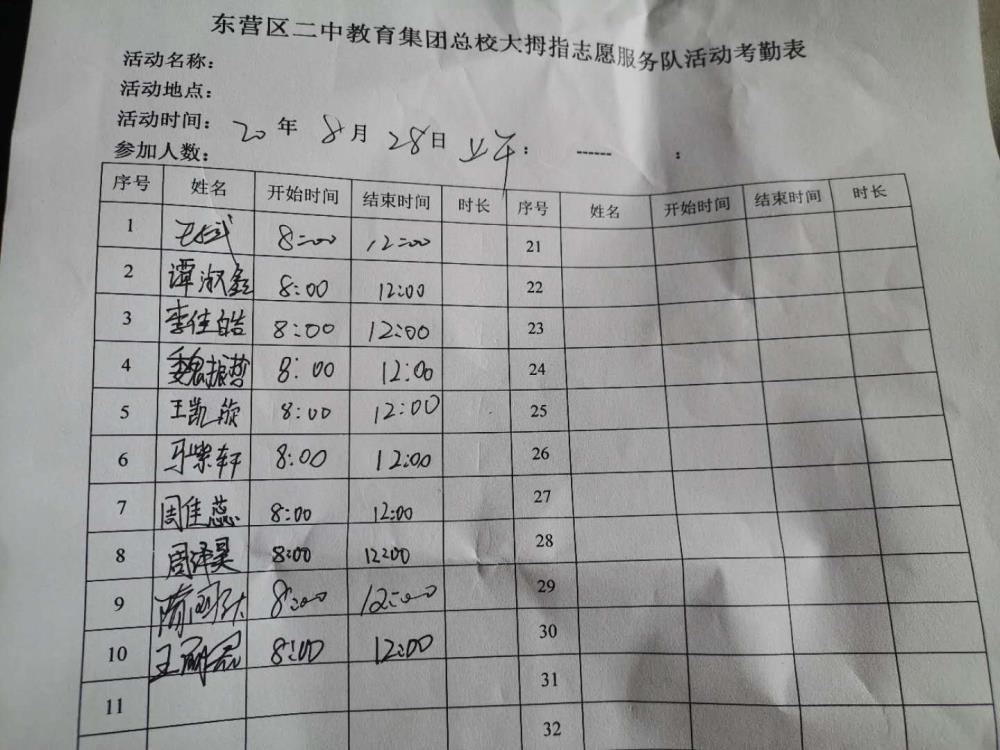 东营区二中教育集团总校大拇指志愿服务队活动考勤表
活动名称：
活动地点：
活动时间： 20 年 8 月 28 日 上午： ------ ：
参加人数：
序号 姓名 开始时间 结束时间 时长 序号 姓名 开始时间 结束时间 时长
1 8:00 12:00 21
2 谭淑鑫 8:00 12:00 22
3 李佳皓 8:00 12:00 23
4 魏振哲 8:00 12:00 24
5 王凯欣 8:00 12:00 25
6 马紫轩 8:00 12:00 26
7 周佳蕊 8:00 12:00 27
8 周泽昊 8:00 12:00 28
9 8:00 12:00 29
10 王 8:00 12:00 30
11 31
32